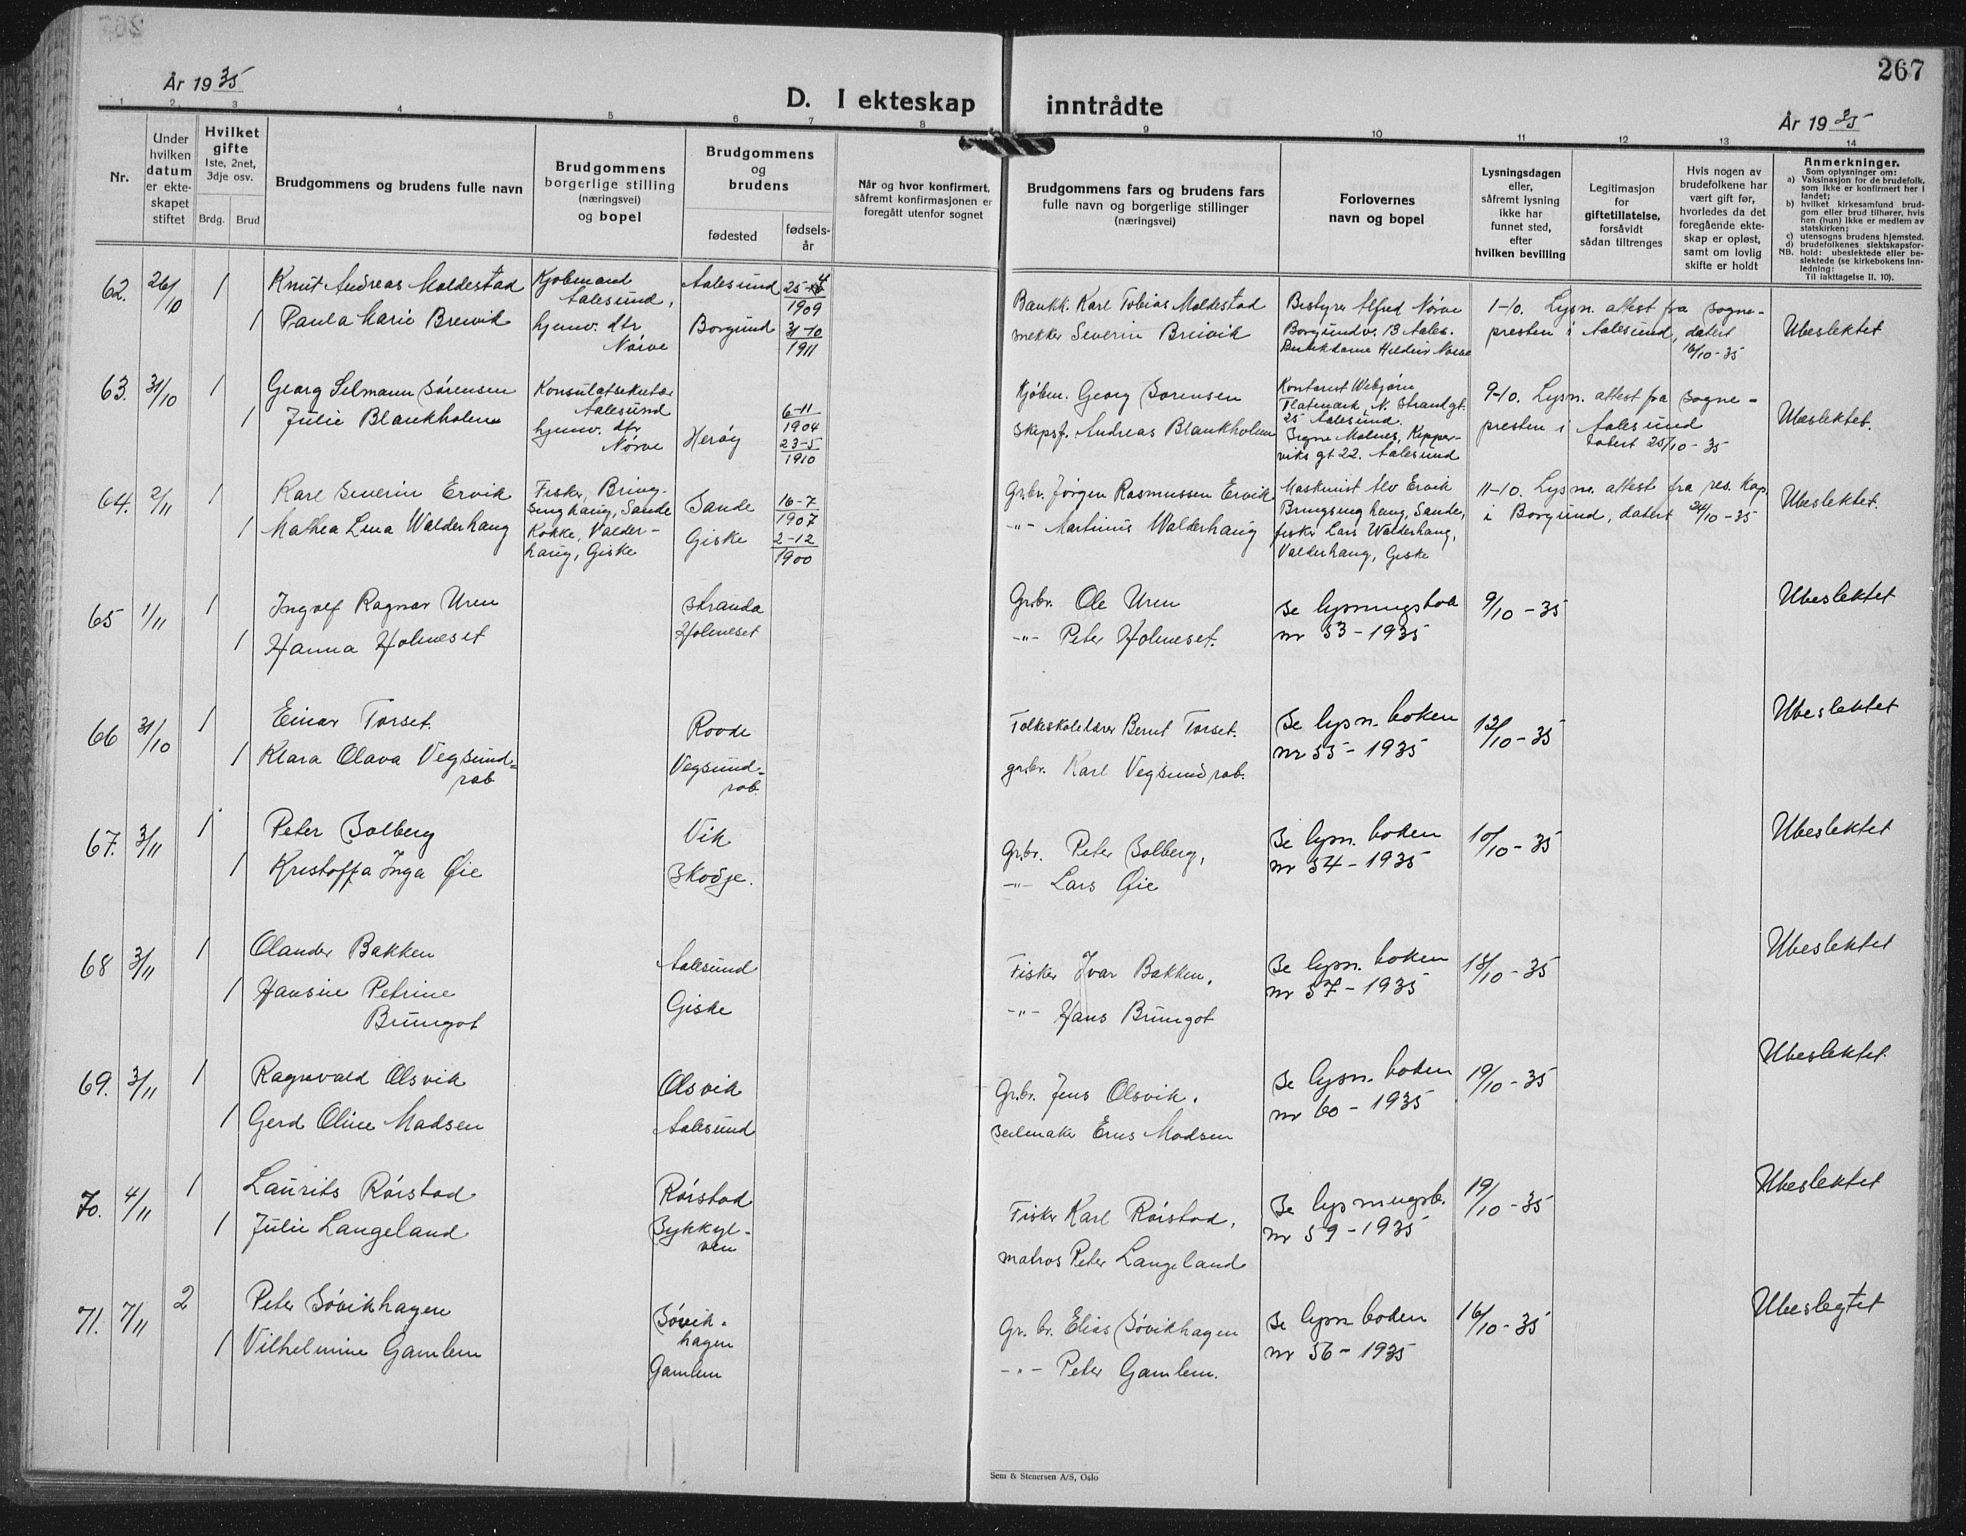 267
År 1935
D. I ekteskap inntrådte
År 1935
1 2 3 4 5 6 7 8 9 10 11 12 13 14
Nr.
Under
hvilken
datum
er ekte-
skapet
stiftet
Hvilket
gifte
1ste, 2net,
3dje osv.
Brdg. Brud
Brudgommens og brudens fulle navn
Brudgommens
borgerlige stilling
(næringsvei)
og bopel
Brudgommens
og
brudens
fødested
fødsels-
år
Når og hvor konfirmert,
såfremt konfirmasjonen er
foregått utenfor sognet
Brudgommens fars og brudens fars
fulle navn og borgerlige stillinger
(næringsvei)
Forlovernes
navn og bopel
Lysningsdagen
eller,
såfremt lysning
ikke har
funnet sted,
efter
hvilken bevilling
Legitimasjon
for
giftetillatelse,
forsåvidt
sådan tiltrenges
Hvis nogen av
brudefolkene har
vært gift før,
hvorledes da det
foregående ekte-
skap er opløst,
samt om lovlig
skifte er holdt
Anmerkninger.
Som oplysninger om:
a) Vaksinasjon for de brudefolk,
som ikke er konfirmert her i
landet;
b) hvilket kirkesamfund brud-
gom eller brud tilhører, hvis
han (hun) ikke er medlem av
statskirken;
c) utensogns brudens hjemsted.
d) brudefolkenes slektskapsfor-
NB. hold: ubeslektede eller be-
slektede (se kirkebokens inn-
ledning:
Til iakttagelse II. 10).
62. 26/10 1 Knut Andreas Moldestad
Kjøbmand
Aalesund,
Aalesund 25-
1909
Bankk. Karl Tobias Moldestad
Bestyrer Alfred Nørve
Borgundv. 13 Aales.
1-10. Lysn. attest fra sogne-
presten i Aalesund, datert
16/10-35
Ubeslektet
1 Paula Marie Breivik
hjemv. dtr
Nørve
Borgund 31-10
1911
Severin Breivik
63. 31/10 1 Georg Selmann Sørensen
Konsulatsekretær
Aalesund
6-11
1904
Kjøbm. Georg Sørensen
Kontorist Webjørn
Flatmark, N. Strandgt.
25 Aalesund.
Signe Molnes, Kipper-
viks gt 22. Aalesund
9-10. Lysn. attest fra sogne-
presten i Aalesund
datert 25/10-35
Ubeslektet.
1 Julie Blankholm
hjemv. dtr
Nørve
Herøy 23-5
1910
Skipsf. Andreas Blankholm
64. 2/11 1 Karl Severin Ervik
Fisker, Bring-
singhaug, Sande
Sande 16-7
1907
Grbr. Jørgen Rasmussen Ervik
Maskinist Alv Ervik
Bringsinghaug, Sande,
fisker Lars Walderhaug,
Valderhaug, Giske
11-10. Lysn. attest fra res. kap.
i Borgund, datert 24/10-35
Ubeslektet.
1 Mathea Lena Walderhaug
Kokke, Valder-
haug, Giske
Giske 2-12
1900
-"- Martinus Walderhaug
65 1/11 1 Ingolf Ragnar Uren
Stranda
Grbr. Ole Uren
Se lysningsbok
nr 53-1935
9/10-35
Ubeslektet
1 Hanna Holmeset
Holmeset
-"- Peter Holmeset.
66 31/10 1 Einar Torset.
Rovde
Folkeskolelærer Bernt Torset.
Se lysn. boken
nr 55-1935
12/10-35
Ubeslektet
1 Klara Olava Vegsund-
rab
Vegsund-
rab.
grbr. Karl Vegsundrab.
67. 3/11 1 Peter Solberg
Vik
Grbr. Peter Solberg,
Se lysn. boken
nr 54-1935
10/10-35
Ubeslektet
1 Kristoffa Inga Øie
Skodje.
-"- Lars Øie
68 3/11 1 Olander Bakken
Aalesund
Fisker Ivar Bakken,
Se lysn. boken
nr 57-1935
18/10-35
Ubeslektet
1 Hansine Petrine
Brungot
Giske
-"- Hans Brungot
69. 3/11 1 Ragnvald Olsvik
Olsvik
Grbr. Jens Olsvik.
Se lysn. boken
nr 60-1935
19/10-35
Ubeslektet
1 Gerd Oline Madsen
Aalesund
Seilmaker Madsen
70. 4/11 1 Laurits Rørstad
Rørstad
Fisker Karl Rørstad,
Se lysningsb.
nr 59-1935
19/10-35
Ubeslektet
1 Julie Langeland
Sykkyl-
ven
matros Peter Langeland
71. 7/11 2 Peter Søvikhagen
Søvik-
hagen
Gr. br. Elias Søvikhagen
Se lysn boken
nr 56-1935
16/10-35
Ubeslegtet
1 Vilhelmine Gamlem
Gamlem
-"- Peter Gamlem.
Sem & Stenersen A/S, Oslo